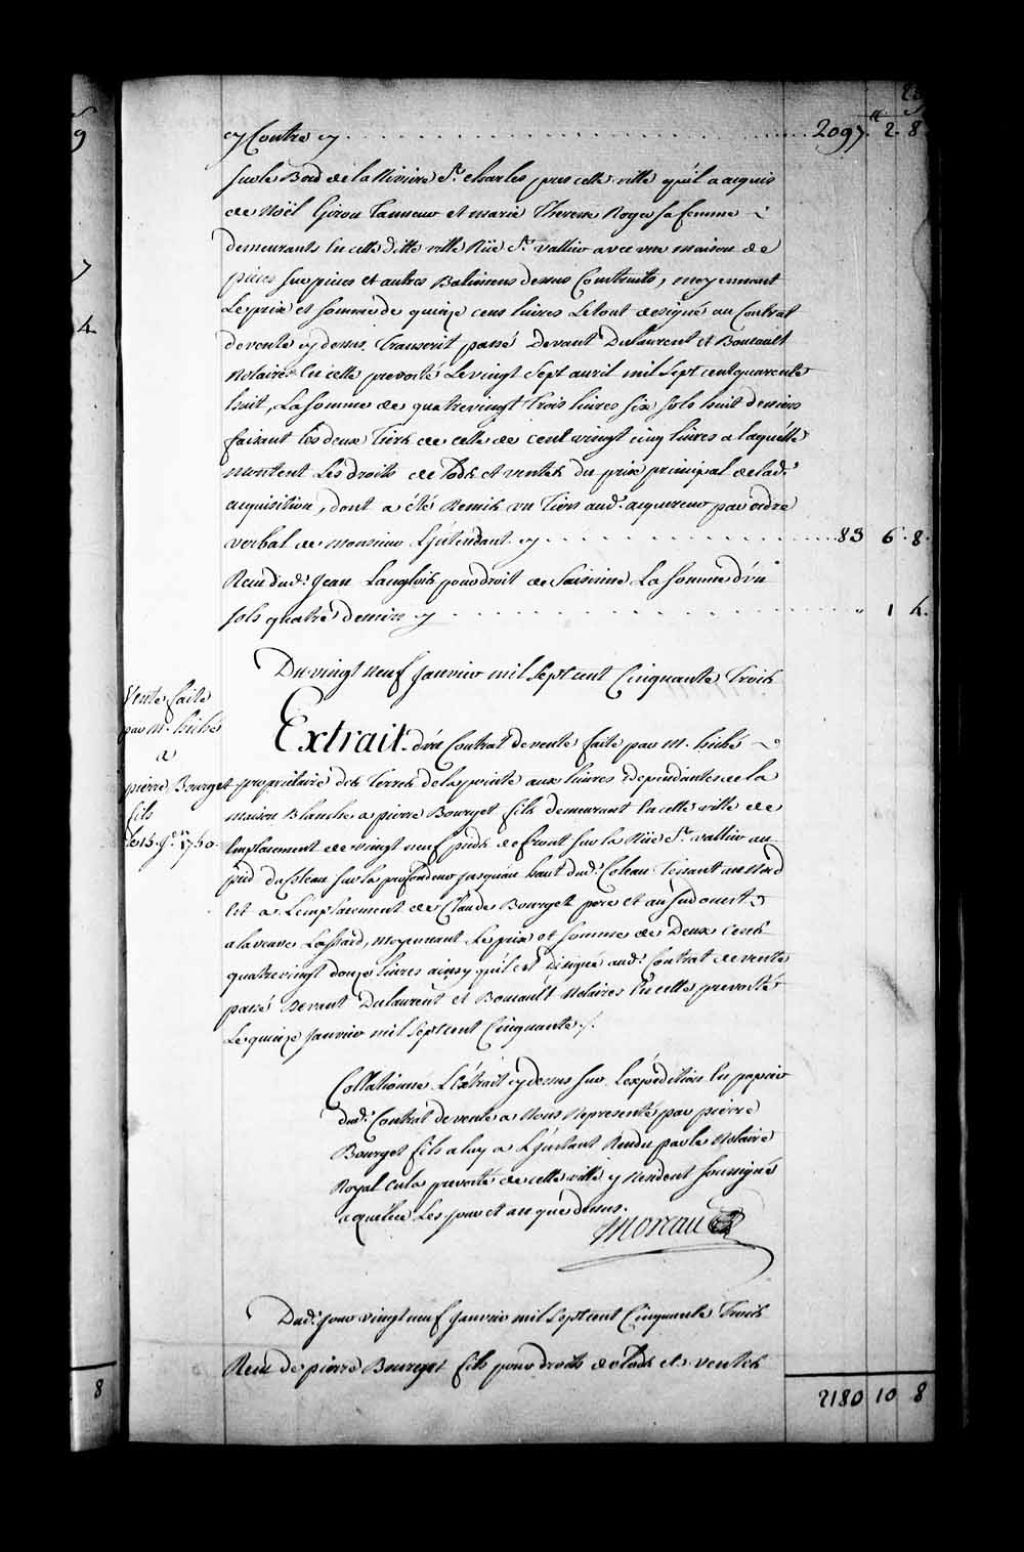 cy Contre cy . . . . 2097 ʺ 2. 8
sur le Bord de la Riviere St. charles pres cette ville qu'il a acquis
de Noël Girou Tanneur et marie Therese Roger sa femme
demeurants En cette ditte ville Rüe St. vallier avec une maison de
pieces sur pieces et autres Batimens dessus Construits, moyennant
Le prix et somme de quinze cens livres Le tout designé au Contrat
de vente cy dessus Transcrit passé devant Dulaurent et Boucault
Notaires En cette prevoté Le vingt Sept avril mil Sept cent quarente
huit, La somme de quatrevingt Trois livres six sols huit deniers
faisant les deux Tiers de celle de cent vingt cinq livres a laquelle
montent Les droits de lods et ventes du prix principal de lad.
acquisition, dont a été Remis un Tiers aud. acquereur par ordre
verbal de Monsieur L'jntendant cy . . . . 83 6. 8.
Recu dud. Jean Langlois pour droit de Saisine La Somme d'un
sols quatre deniers cy . . . . " 1 4.
Du vingt neuf Janvier mil Sept cent Cinquante Trois
Vente faite
par M. hiché
a
pierre Bourget
fils
le 15. Jer. 1750.
Extrait d'un Contrat de vente faite par M. hiché
propriétaire des Terres de la pointe aux lievres dependantes de la
maison Blanche a pierre Bourget fils demeurant En cette ville de
Lemplacement de vingt neuf pieds de front sur la Rüe St. vallier au
pied du Coteau sur la profondeur jusqu'au haut dud. Coteau Tenant au Nord
Est a Lemplacement de Claude Bourget pere et au Sud ouest
a la veuve Lassard, moyennant Le prix et somme de Deux cents
quatrevingt douze livres ainsy qu'il est disigné aud. Contrat de vente
passé devant Dulaurent et Boucault Notaires En cette prevoté
Le quinze Janvier mil Sept cent Cinquante /.
Collationné L'Extrait cy dessus sur L'expedition En papier
dud. Contrat de vente a Nous Representé par pierre
Bourget fils a luy a L'jnstant Rendu par le Notaire
Royal en la prevoté de cette ville y Residant soussigné
a quebec Les jour et an que dessus.
Moreau
Dud. jour vingt neuf Janvier mil Sept cent Cinquante Trois
Recu de pierre Bourget fils pour droits de lods et ventes
2180 10 8